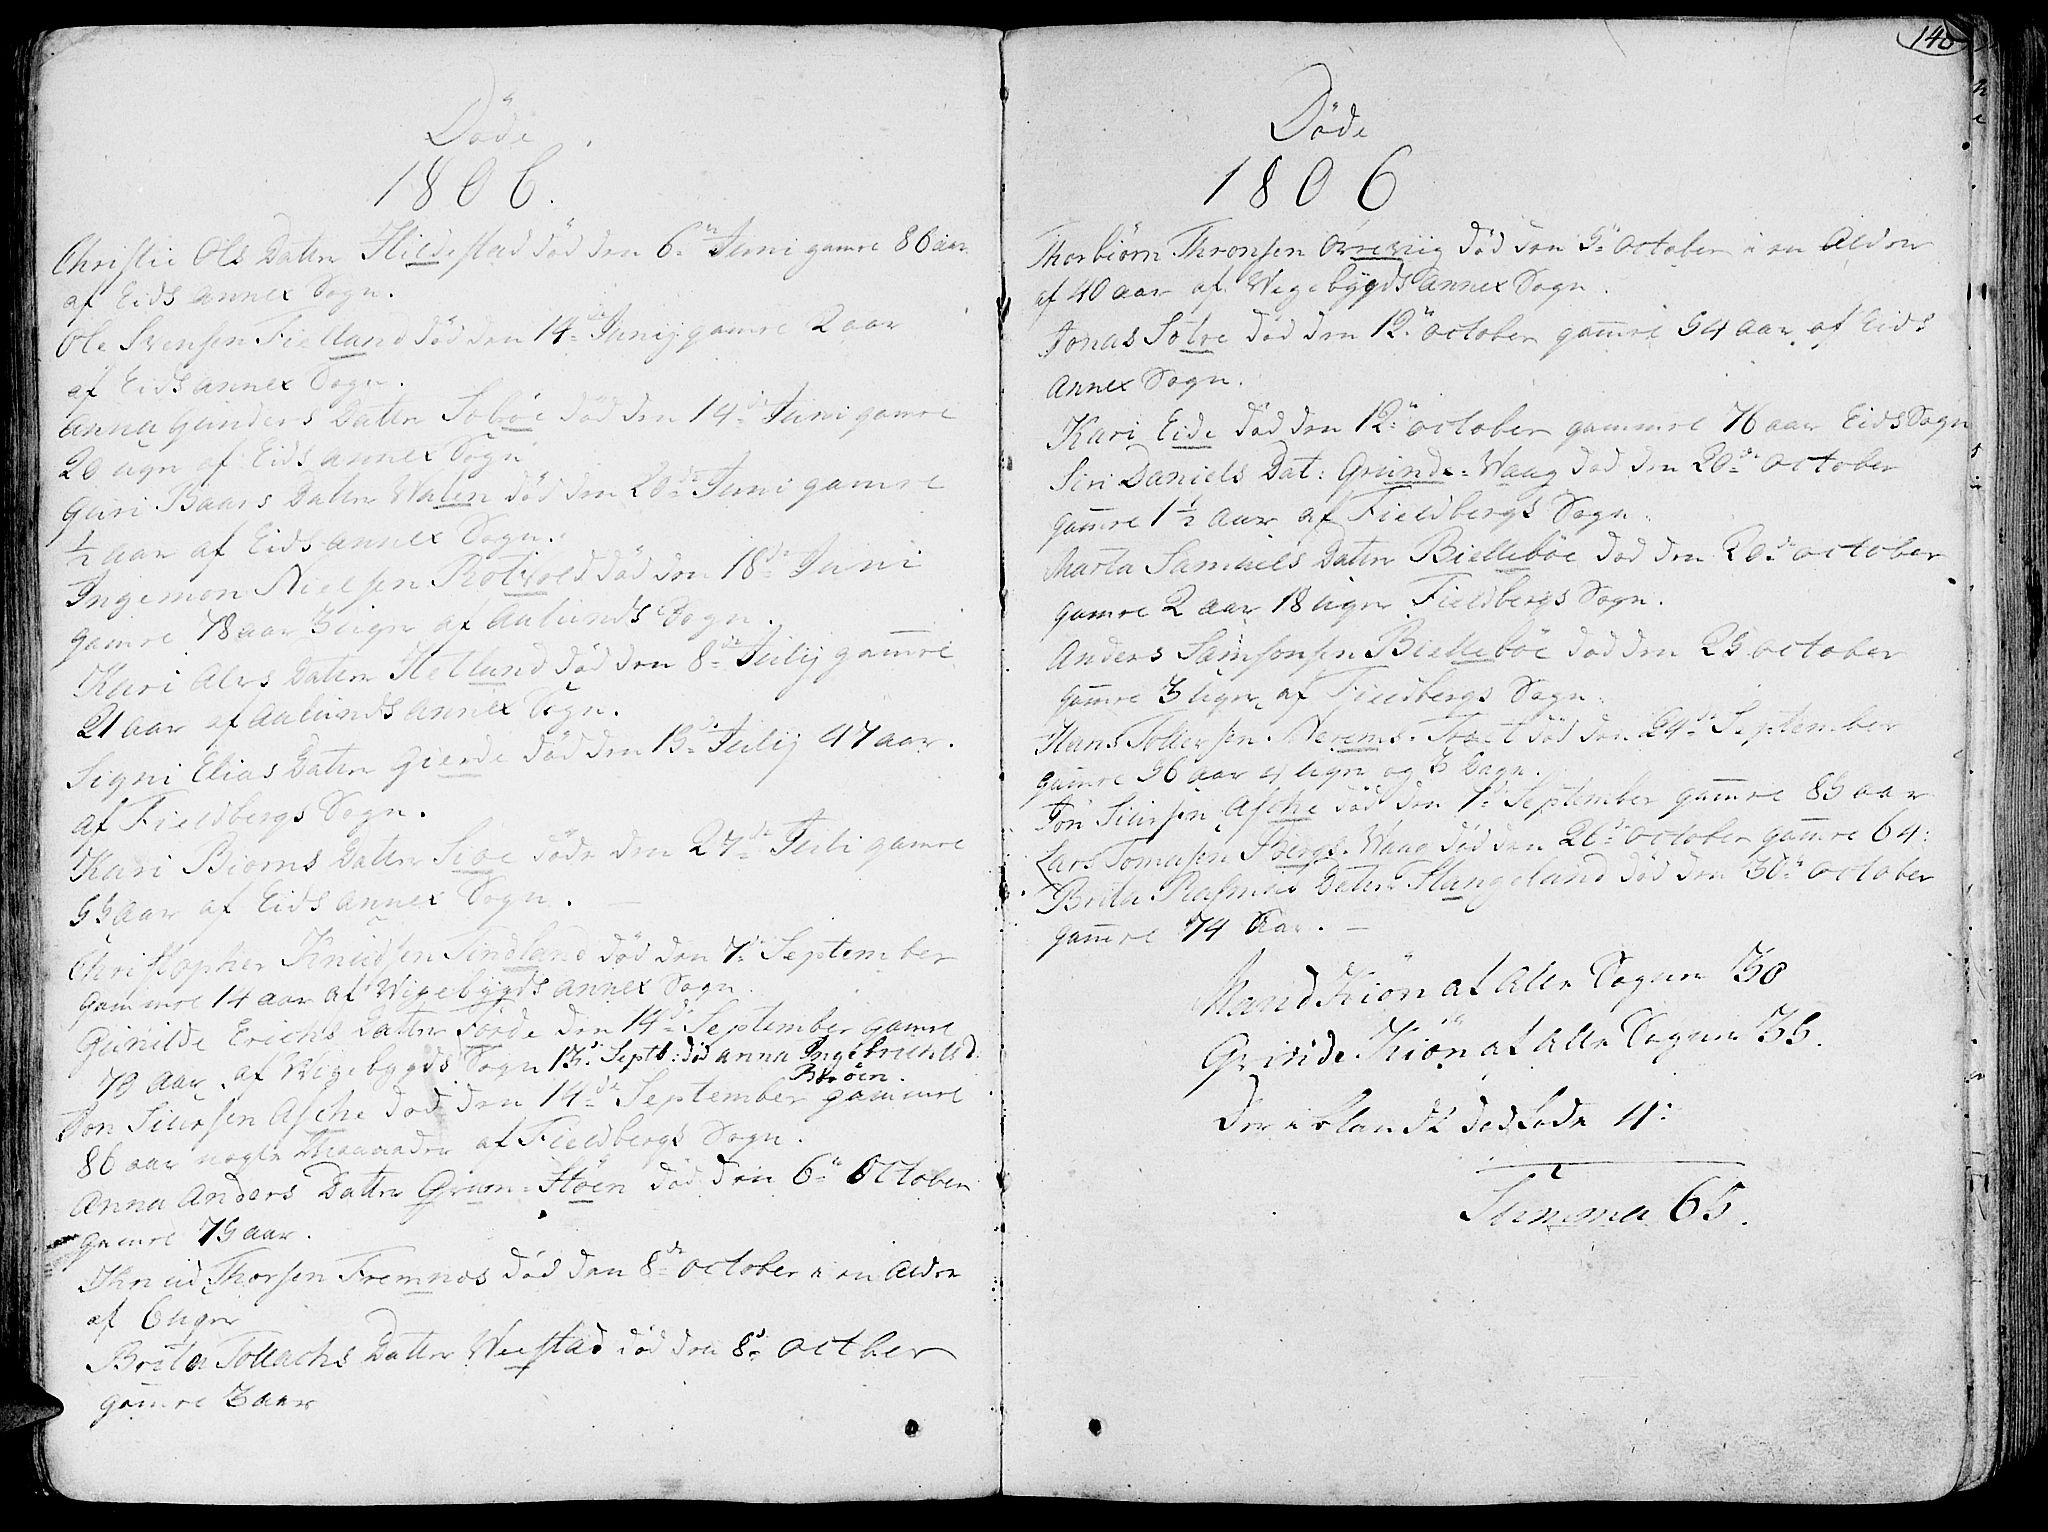 Døde
1806.
Christie Ols Datter Hildestad død den 6te Juni gamle 86 aar
af Eids annex Sogn.
Ole Svensen Fielland død den 14de Junij gamle 2 aar
af Eids annex Sogn.
Anna Gunders Datter Søbøe død den 14de Juni gamle
20 uger af Eids annex Sogn
Guri Baars Datter Walen død den 20de Juni gamle
1/2 aar af Eids annex Sogn.
Ingemon Nielsen død den 18de Juni
gamle 78 aar 3 uger af Aalunds Sogn.
Kari Ales Datter Hetland død den 8de Julij gam̅le
21 aar af Aalunds annex Sogn.
Signi Elias Datter Gierde død den 13de Julij 47 aar.
af Fieldbergs Sogn.
Kari Biorns Datter Sioe døde den 27de Juli gamle
55 aar af Eids annex Sogn.
Christopher Knudsen Tindland død den 7de September
gammle 14 aar af Wigebygds annex Sogn.
Gunilde Erichs Datter Førde den 14de September gamle
79 aar af Wigebygds Sogn 13de Septb: død anna Ingebricktsd:
Brøen.
Jon Siursen Asche død den 14de September gammle
86 aar nogle Maaneder af Fieldbergs Sogn.
Anna Anders Datter Grøn-Støen død den 6te October
gamle 75 aar.
Knud Thorsen Fremnes død den 8de October i en Alder
af 6 uger
Brita Tollachs Datter Weestad død den 8de octber
gam̅le 3 aar
140
Døde
1806
Thorbiørn Thronsen Ørreviig død den 9de October i en Alder
af 40 aar af Wigebygds annex Sogn.
Jonas Sølve død den 12te October gam̅le 54 aar af Eids
annex Sogn.
Kari Eide død den 12te October gammle 76 aar Eids Sogn
Siri Daniels Dat: Grunde-Waag død den 20de October
gam̅le 1 1/2 aar af Fieldbergs Sogn.
Marta Samuels Datter Biellebøe død den 20de october
gamle 2 aar 18 uger Fieldbergs Sogn.
Anders Samsonsen Biellebøe død den 25 october
gam̅le 3 uger af Fieldbergs Sogn.
Hans Tollersen Nerems-Tvet død den 24de September
gamle 56 aar 4 uger og 3 Dage.
Jon Siursen Asche død den 1te September gam̅le 85 aar
Lars Tomasen Bergs-Waag død den 26de October gam̅le 64:
Brita Rasmus Datter Stangeland død den 30te October
gam̅le 74 Aar.
Mand Kiøn af Alle Sogner 30
Qvinde Kiøn af Alle Sogner 35.
Der iblandt død fødte 11:
Summa 65.